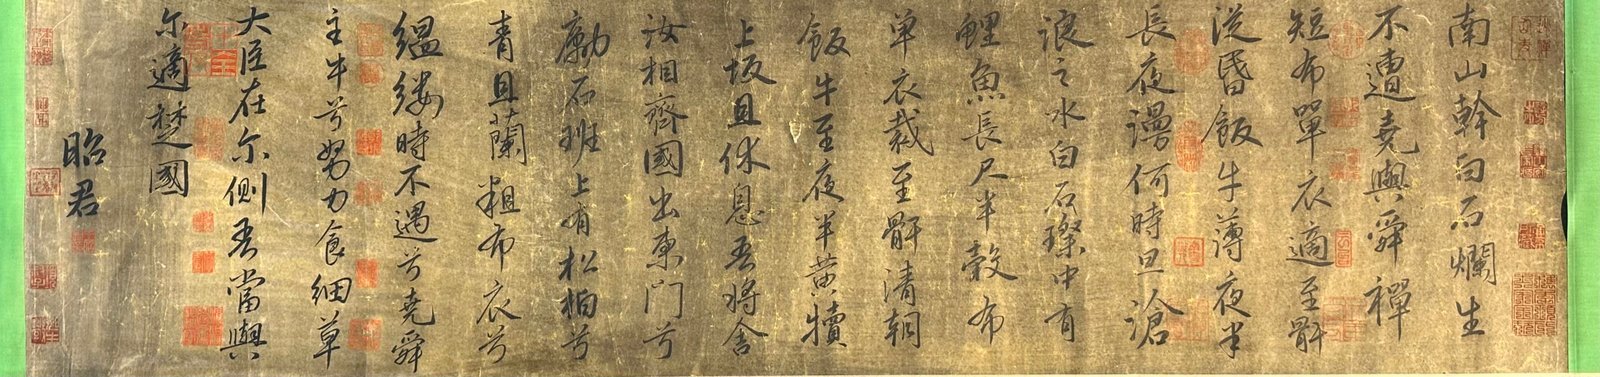 南山幹白石爛生
不遭堯與舜禪
短布單衣適至骭
從昏飯牛薄夜半
長夜漫何時旦滄
浪之水白石璨中有
鯉魚長尺半穀布
單衣裁至骭清朝
飯牛至夜半黄犢
上坂且休息吾將舍
汝相齊國出東門兮
勵石班上有松柏兮
青且蘭粗布衣兮
緼縷時不遇兮堯舜
主牛兮努力食細草
大臣在尔側吾當與
尔適楚國
昭君